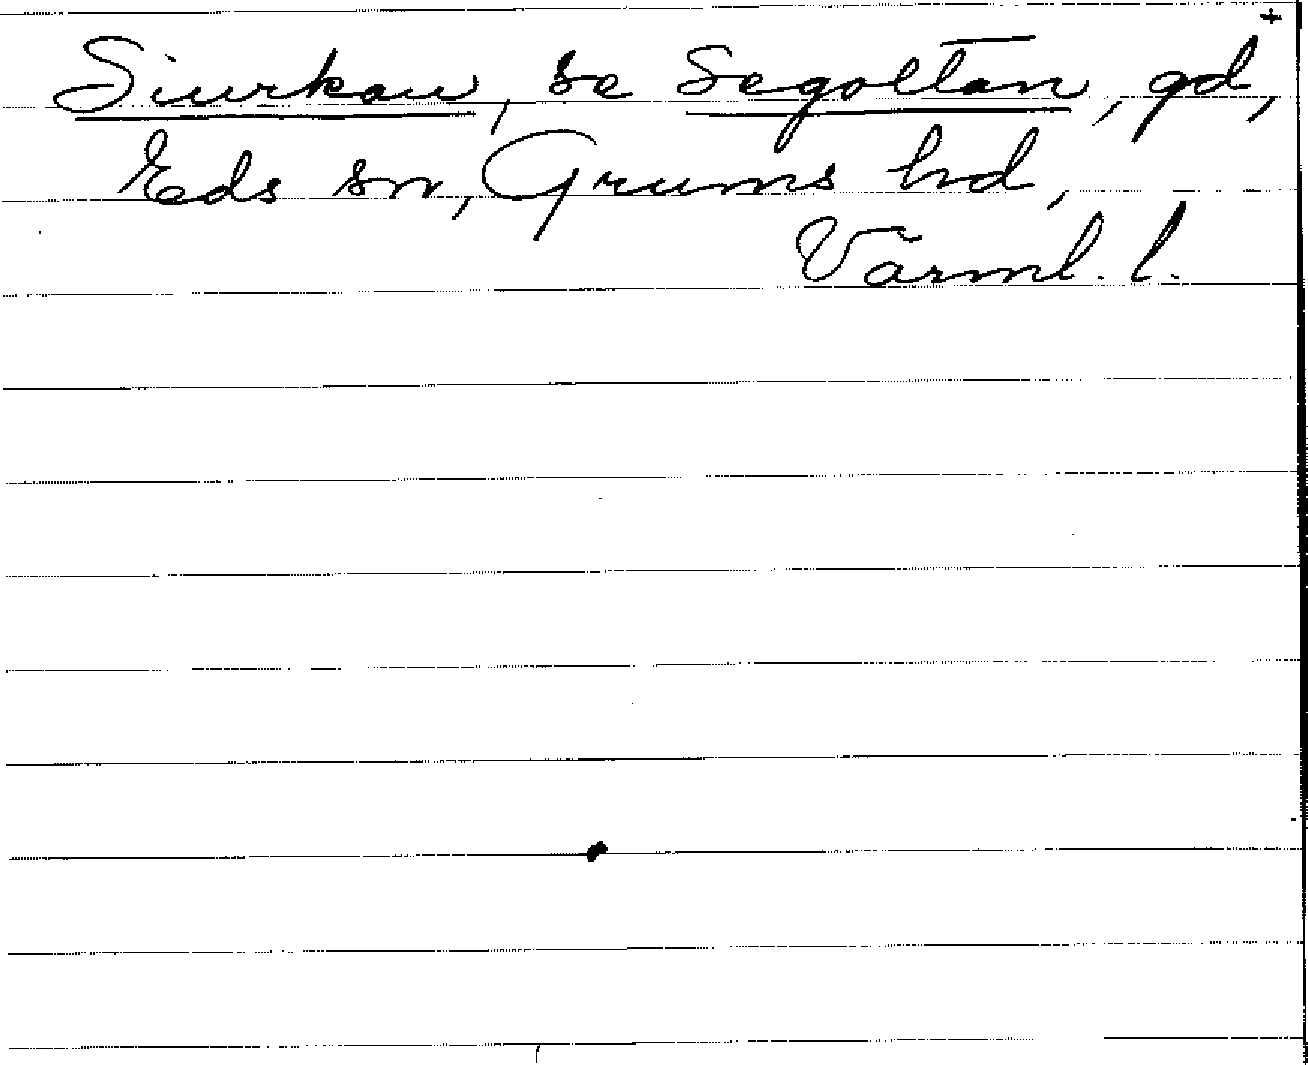 +
Siurkau, se Segoltan, gd,
Eds sn, Grums hd,
Värml. l.